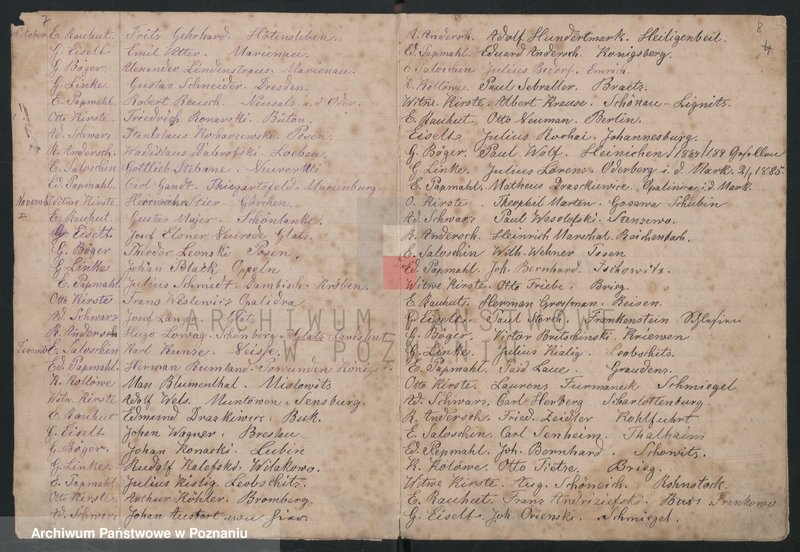 7
October E. Rauhut. Fritz Gehrhard. Hötensleben.
G. Eiselt Emil Vetter. Marienau.
G. Böger. Alexander Lindenstraus. Marienau.
G. Linke. Gustav Schneider. Dresden.
E. Papmahl. Robert Reusch. Neusalz a. d. Oder.
Otto Kirste Friedrich Konarski. Bütow.
Ad. Schwarz Stanislaus Kocharzenski. Posen.
R. Andersch. Wadislaus Dabrofski. Loebau.
E. Saloschin Gottlieb Stebane.
Ed. Papmahl. Carl Gandt. Marienburg.
Novemb. Witwe Kirste Hermann Stier. Görchen.
E. Rauhut Gustav Majer. Schönlanke.
Gr. Eiselt Josef Elsner Neurode Glatz.
G. Böger Theodor Leonski Posen.
G. Linke Johan Polack Oppeln.
E. Papmahl Julius Schmidt. Dambisch - Kröben.
Otto Kirste Franz Keslewicz Opalidza
Ad. Schwarz Josef Langer. Glatz
R. Andersch Hugo Lowag. Schönberg.
Decembr. E. Saloschin Karl Kunze. Neisse.
Ed. Papmahl. Herman Rumland.
R. Kollowe. Max Blumenthal. Mislowitz
Witw. Kirste Adolf Wels. Muntowen Sensburg.
E. Rauhut Edmund Drazkiewicz. Buk.
G. Eiselt Johan Wagner. Breslau
G. Böger. Johan Konacki. Lubin
G. Linke. Rudolf Kalefski. Wilakowo.
E. Papmahl Julius Kislig. Leobschitz.
Otto Kirste. Arthur Köhler. Bromberg.
Ad. Schwarz Johan
8
4
R. Andersch. Adolf Hundertmark. Heiligenbeil.
Ed. Papmahl. Eduard Andersch. Konigsberg.
E. Saloschin Julius Bedorf. Emrich.
R. Kollowe. Paul Sebraller. Braetz.
Witw. Kirste. Albert Krause. Schönau - Lignitz.
E. Rauhut. Otto Neuman. Berlin.
Eiselt Julius Rochai. Johannesburg.
G. Böger. Paul Wolf. Heinichen 1884/189
G. Linke. Julius Lorenz. Oderberg i. d. Mark. 2/1 1885.
E. Papmahl. Matheus Drazkiewicz. Opalenica i. d. Mark.
O. Kirste. Theophil Marten. Gosawa Schubin
Ad. Schwarz Paul Wasolefski.
R. Andersch. Heinrich Marschal. Reichenbach.
E. Saloschin Wilh. Wehner Posen
Ed. Papmahl. Joh. Bernhard. Tschowitz.
Witwe Kirste. Otto Friebe. Brieg.
E. Rauhut. Herman Grossman. Reisen.
G. Eiselt. Paul Storch. Frankenstein Schlesien
G. Böger. Victor Britschinski. Kriewen
G. Linke. Julius Kislig. Leobschitz.
E. Papmahl. Paid Laue. Graudenz.
Otto Kirste. Laurenz Furmanek Schmiegel
Ad. Schwarz. Carl Herberg Scharlottenburg.
R. Andersch. Fried. Zeidler Kohlfuhrt
E. Saloschin. Carl Senheim. Thalheim
Ed. Papmahl. Joh. Bernhard. Schowitz.
R. Kolowe. Otto Tietze. Brieg.
Witwe Kirste. Aug. Schöneich. Rohnstock.
E. Rauhut. Franz Andrziefski. Buk
G. Eiselt Joh. Orienski. Schmiegel.
ARCHIWUM PAŃSTWOWE
W POZNANIU
Archiwum Państwowe w Poznaniu